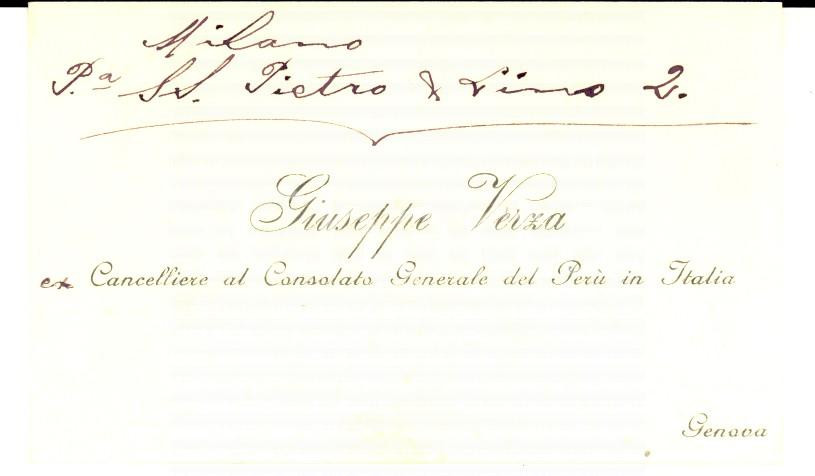 Milano
P.a SS. Pietro & Lino 2.
Giuseppe Verza
ex Cancelliere al Consolato Generale del Perù in Italia
Genova